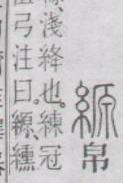 縓帛
淺絳也。練冠
弓注曰。縓、纁